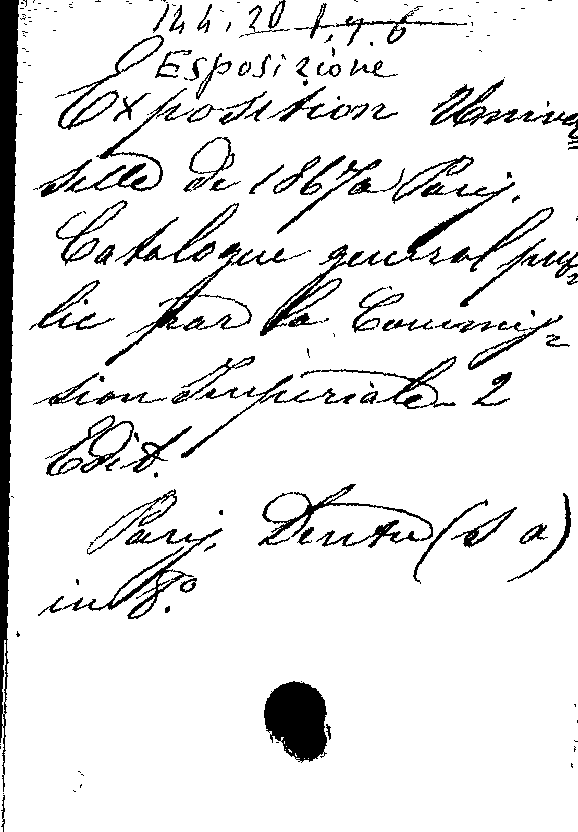 144.20 1.7.6
Esposizione
Exposition Univer
selle de 1867 a Paris.
Catalogue general pub=
lie par la Commis=
sion Imperiale 2
Edit.
Paris. Dentu (s a)
in 8.°